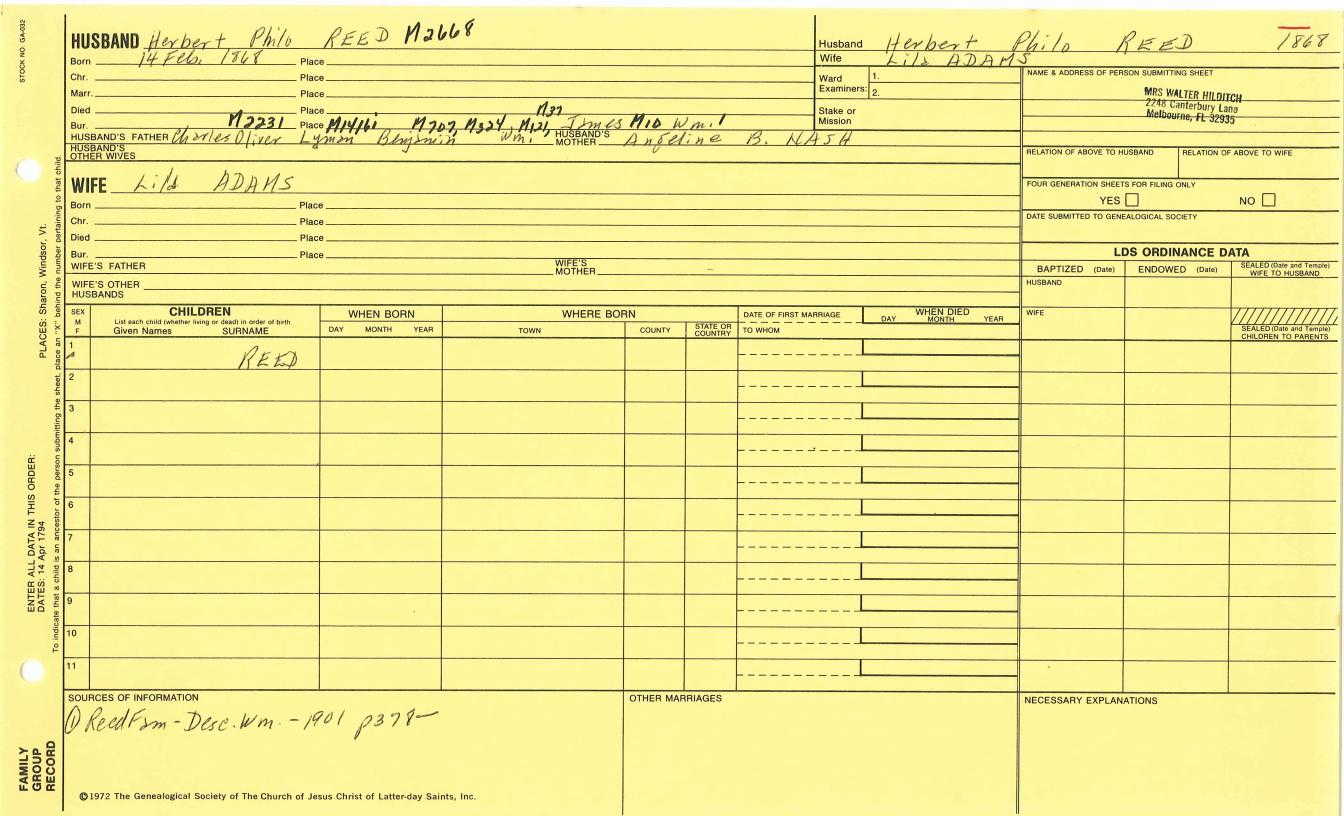 STOCK NO. GA-032
HUSBAND Herbert Philo REED M2668
Born 14 Feb. 1868 Place
Chr. Place
Marr. Place
Died Place
M37
Bur. M2231 Place M14/61 M707, M324, M121, James M10 Wm.1
HUSBAND'S FATHER Charles Oliver Lyman Benjamin Wm. HUSBAND'S MOTHER Angeline B. NASH
HUSBAND'S OTHER WIVES
WIFE Lila ADAMS
Born Place
Chr. Place
Died Place
Bur. Place
WIFE'S FATHER WIFE'S MOTHER
WIFE'S OTHER HUSBANDS
Husband Herbert Philo REED 1868
Wife Lila ADAMS
Ward Examiners: 1.
2.
Stake or Mission
NAME & ADDRESS OF PERSON SUBMITTING SHEET
MRS WALTER HILDITCH
2248 Canterbury Lane
Melbourne, FL 32935
RELATION OF ABOVE TO HUSBAND RELATION OF ABOVE TO WIFE
FOUR GENERATION SHEETS FOR FILING ONLY
YES NO
DATE SUBMITTED TO GENEALOGICAL SOCIETY
LDS ORDINANCE DATA
BAPTIZED (Date) ENDOWED (Date) SEALED (Date and Temple) WIFE TO HUSBAND
HUSBAND
WIFE
SEALED (Date and Temple) CHILDREN TO PARENTS
SEX M F
CHILDREN
List each child (whether living or dead) in order of birth
Given Names SURNAME
WHEN BORN
DAY MONTH YEAR
WHERE BORN
TOWN COUNTY STATE OR COUNTRY
DATE OF FIRST MARRIAGE
TO WHOM
WHEN DIED
DAY MONTH YEAR
1 REED
2
3
4
5
6
7
8
9
10
11
SOURCES OF INFORMATION
① Reed Fam - Desc. Wm. - 1901 p378
OTHER MARRIAGES
NECESSARY EXPLANATIONS
©1972 The Genealogical Society of The Church of Jesus Christ of Latter-day Saints, Inc.
FAMILY GROUP RECORD
ENTER ALL DATA IN THIS ORDER:
DATES: 14 Apr 1794
PLACES: Sharon, Windsor, Vt.
To indicate that a child is an ancestor of the person submitting the sheet, place an "X" behind the number pertaining to that child.